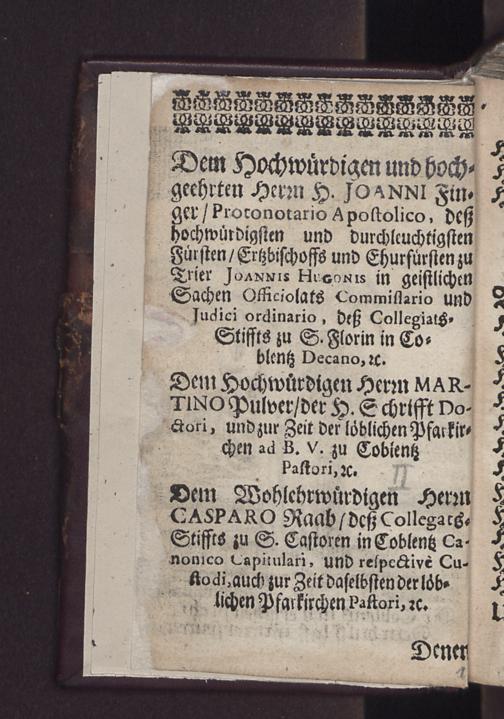 Dem Hochwürdigen und hoch-
geehrten Herrn H. JOANNI Fin-
ger / Protonotario Apostolico, deß
hochwürdigsten und durchleuchtigsten
Fürsten / Ertzbischoffs und Churfürsten zu
Trier JOANNIS HUGONIS in geistlichen
Sachen Officiolats Commissario und
Judici ordinario, deß Collegiats-
Stiffts zu S. Florin in Co-
blentz Decano, ꝛc.
Dem Hochwürdigen Herrn MAR-
TINO Pulver / der H. Schrifft Do-
ctori, und zur Zeit der löblichen Pfarkir-
chen ad B. V. zu Coblentz
Pastori, ꝛc.
II
Dem Wohlehrwürdigen Herrn
CASPARO Raab / deß Collegats-
Stiffts zu S. Castoren in Coblentz Ca-
nonico Capitulari, und respectivè Cu-
stodi, auch zur Zeit daselbsten der löb-
lichen Pfarkirchen Pastori, ꝛc.
Denen